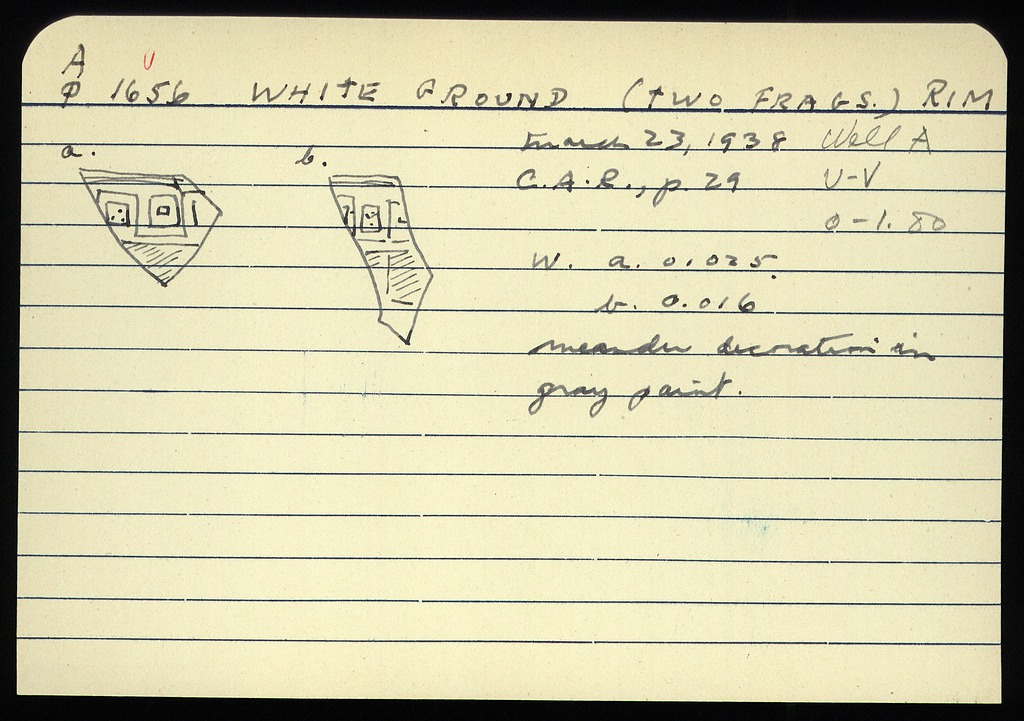 A
P 1656 WHITE GROUND (TWO FRAGS.) RIM
a. b. March 23, 1938 Well A
C.A.R., p. 29 U-V
0-1.80
W. a. 0.025
b. 0.016
meander decoration in
gray paint.